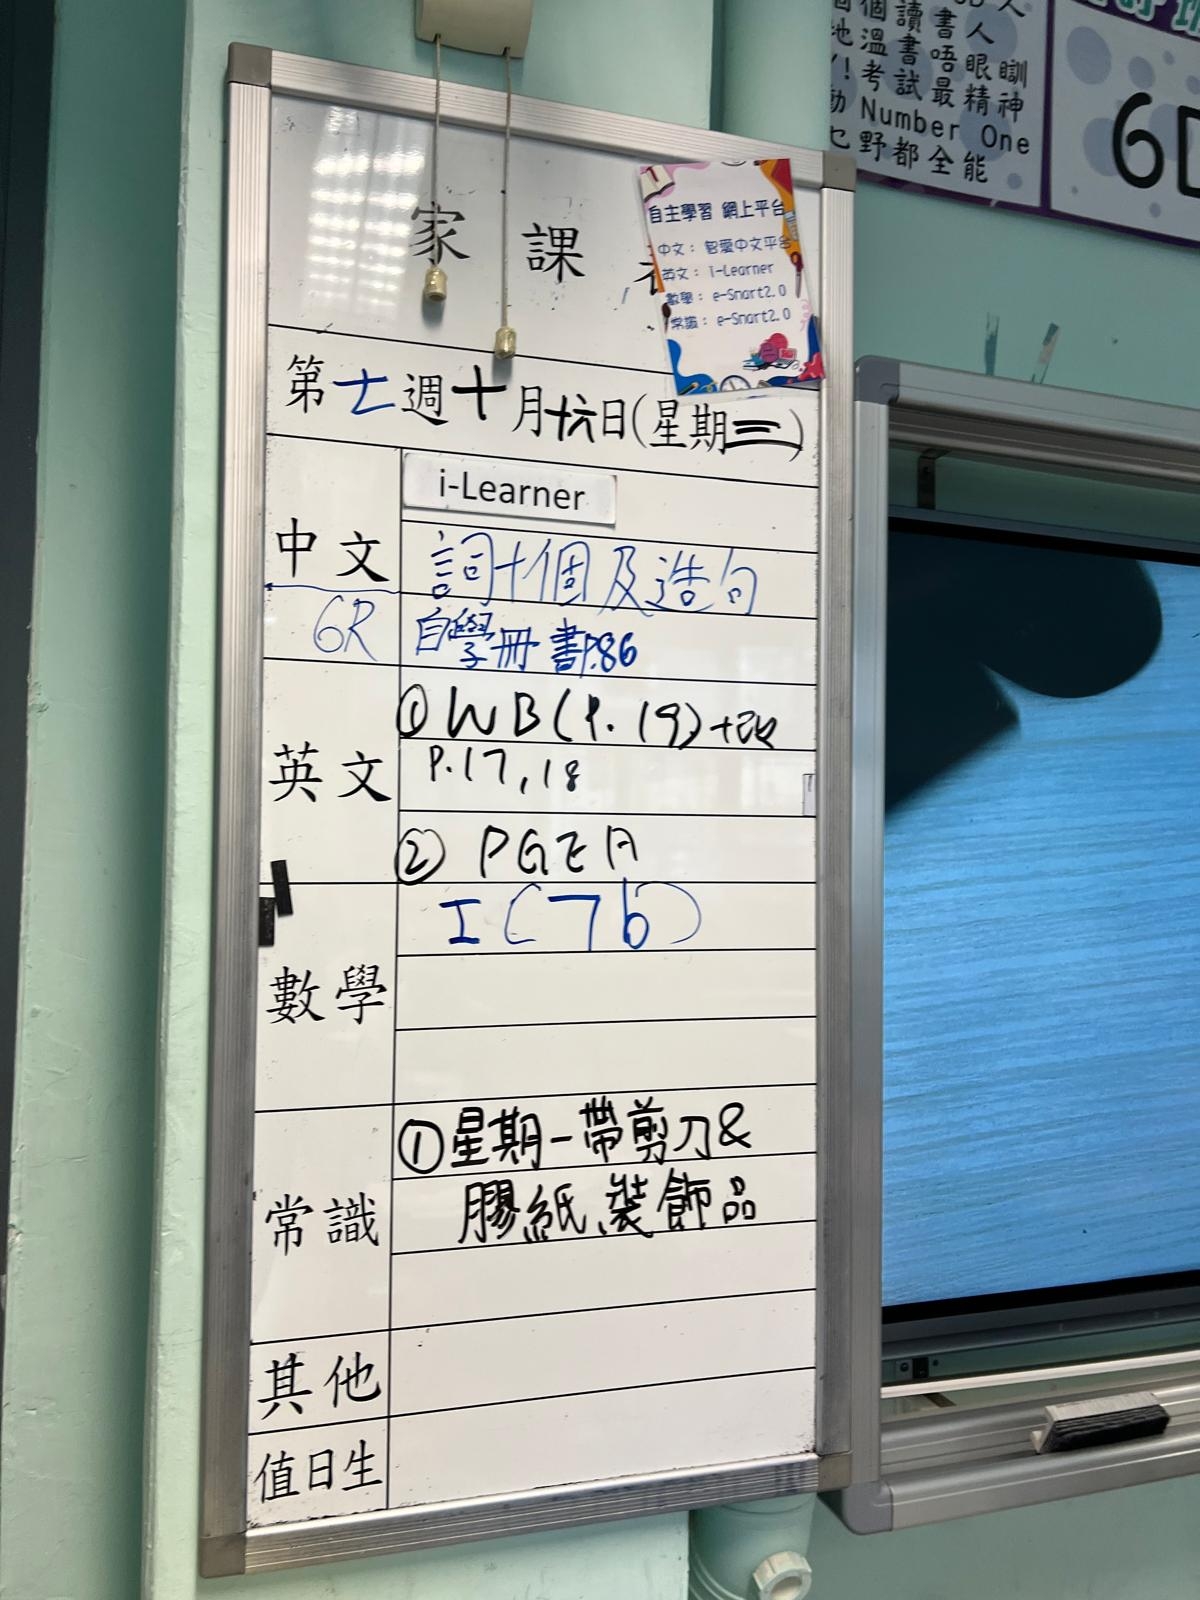 家課
自主學習 網上平台
中文： 智愛中文平台
英文： i-Learner
數學： e-Smart2.0
常識： e-Smart2.0
第七週十月十六日(星期三)
中文
i-Learner
詞十個及造句
6R
自學冊 書P.86
英文
① WB(P.19)+改
P.17,18
② PGEA
數學
I(7b)
常識
①星期一帶剪刀&
膠紙、裝飾品
其他
值日生
個讀書
溫書唔眼瞓
！考試最精神
Number One
野都全能
6D